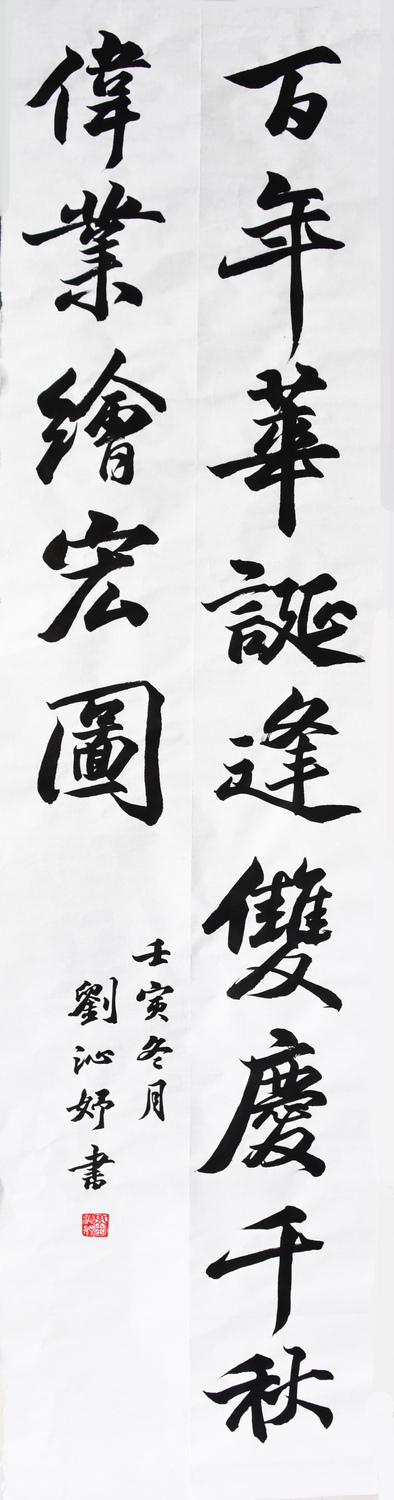 百年華誕逢雙慶千秋
偉業繪宏圖
壬寅冬月
劉沁妤書